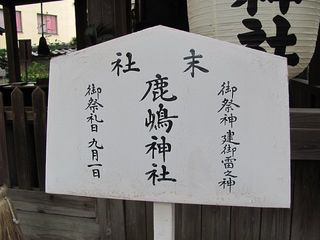 末社
鹿嶋神社
御祭神 建御雷之神
御祭礼日 九月一日
神社